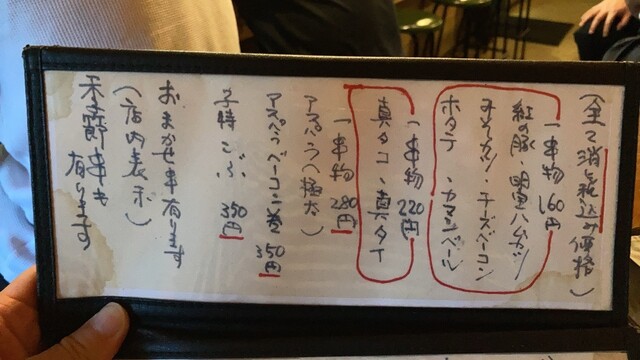 (全て消し税込み価格)
一串物 160円
紅の豚、明宝ハムカツ
チーズベーコン
ホタテ、カマンベール
一串物 220円
真タコ、真タイ
一串物 280円
アスパラ(極太)
アスパラベーコン巻 350円
子持こぶ 350円
おまかせ串有ります
(店内表示)
季節串も
有ります